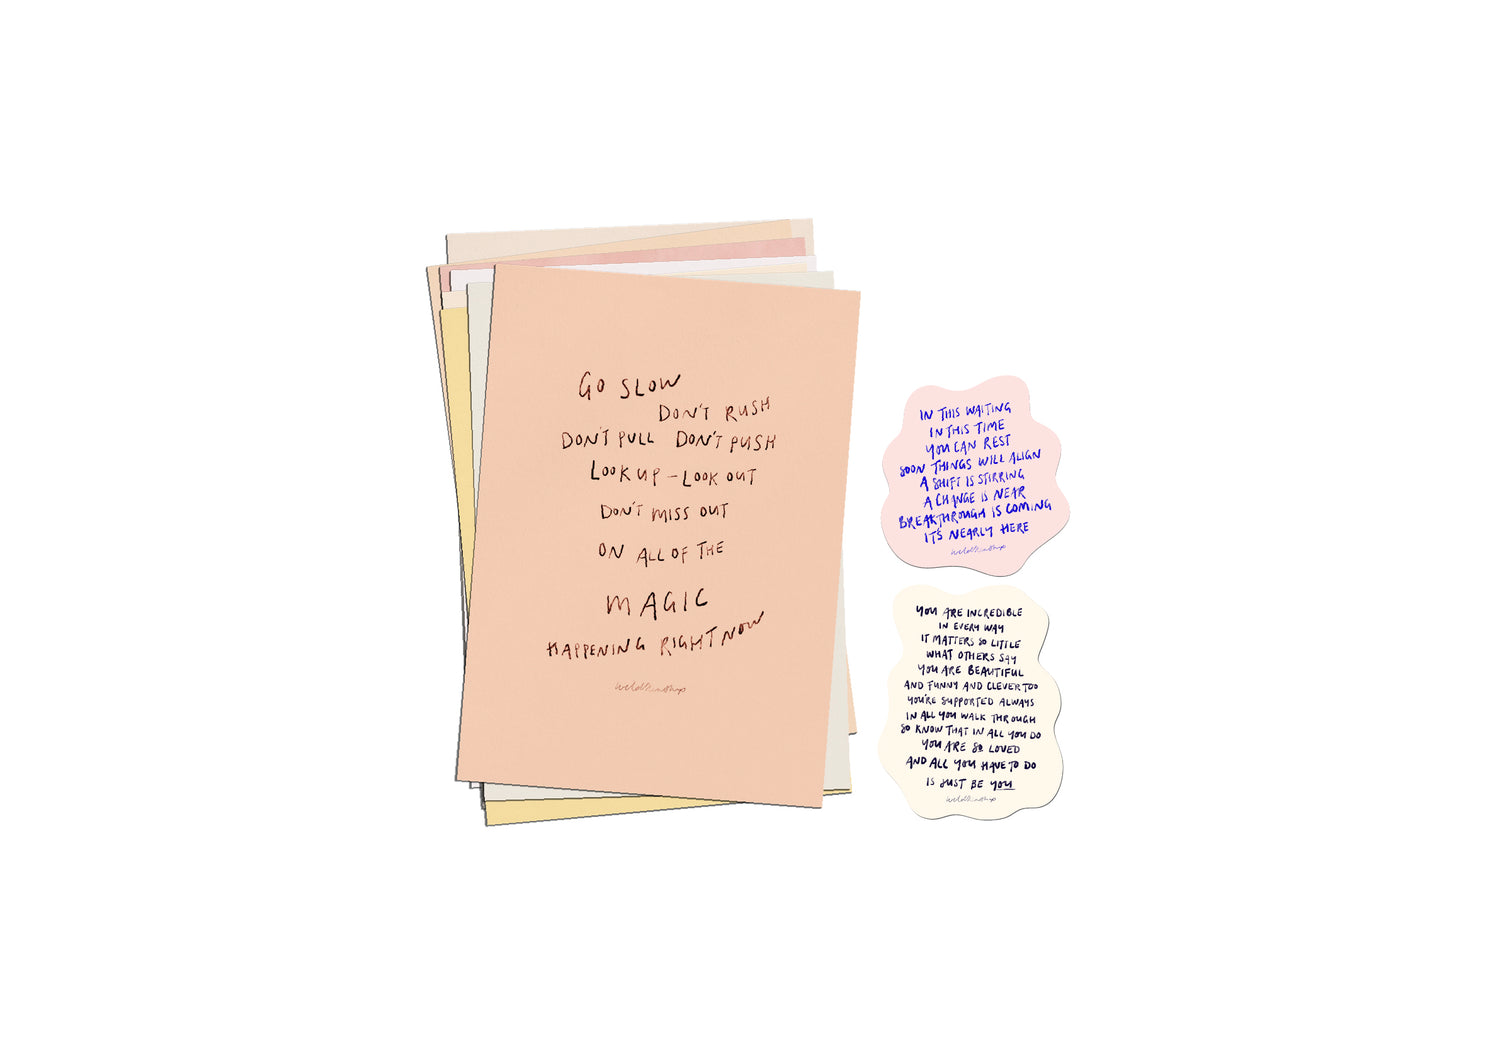 GO SLOW
DON'T RUSH
DON'T PULL DON'T PUSH
LOOK UP – LOOK OUT
DON'T MISS OUT
ON ALL OF THE
MAGIC
HAPPENING RIGHT NOW
IN THIS WAITING
IN THIS TIME
YOU CAN REST
SOON THINGS WILL ALIGN
A SHIFT IS STIRRING
A CHANGE IS NEAR
BREAKTHROUGH IS COMING
IT'S NEARLY HERE
YOU ARE INCREDIBLE
IN EVERY WAY
IT MATTERS SO LITTLE
WHAT OTHERS SAY
YOU ARE BEAUTIFUL
AND FUNNY AND CLEVER TOO
YOU'RE SUPPORTED ALWAYS
IN ALL YOU WALK THROUGH
SO KNOW THAT IN ALL YOU DO
YOU ARE SO LOVED
AND ALL YOU HAVE TO DO
IS JUST BE YOU